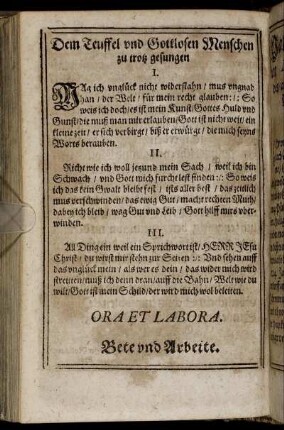 Dem Teuffel vnd Gottlosen Menschen
zu trotz gesungen
I.
MAg ich vnglück nicht widerstahn / mus vngnad
han / der Welt / für mein recht glauben: /: So
weis ich doch jes ist mein Kunst / Gottes Huld vnd
Gunst / die muß man mir erlauben / Gott ist nicht weit / ein
kleine zeit / er sich verbirgt / biß er erwürgt / die mich seyns
Worts berauben.
II.
Richt wie ich woll jezund mein Sach / weil ich bin
Schwach / vnd Gott mich furcht lest finden :/: So weis
ich das kein Gwalt bleibt fest / ists aller best / das zeitlich
mus verschwinden / das ewig Gut / macht rechten Muth /
dabey ich bleib / wag Gut vnd Leib / Gott hilff mirs vber-
winden.
III.
All Ding ein weil ein Sprichwort ist / HERR JEsu
Christ / du wirst mir stehn zur Seiten :/: Vnd sehen auff
das vnglück mein / als wer es dein / das wider mich wird
streiten / muß ich denn dran / auff die Bahn / Welt wie du
wilt / Gott ist mein Schild / der wird mich wol beleiten.
ORA ET LABORA.
Bete vnd Arbeite.